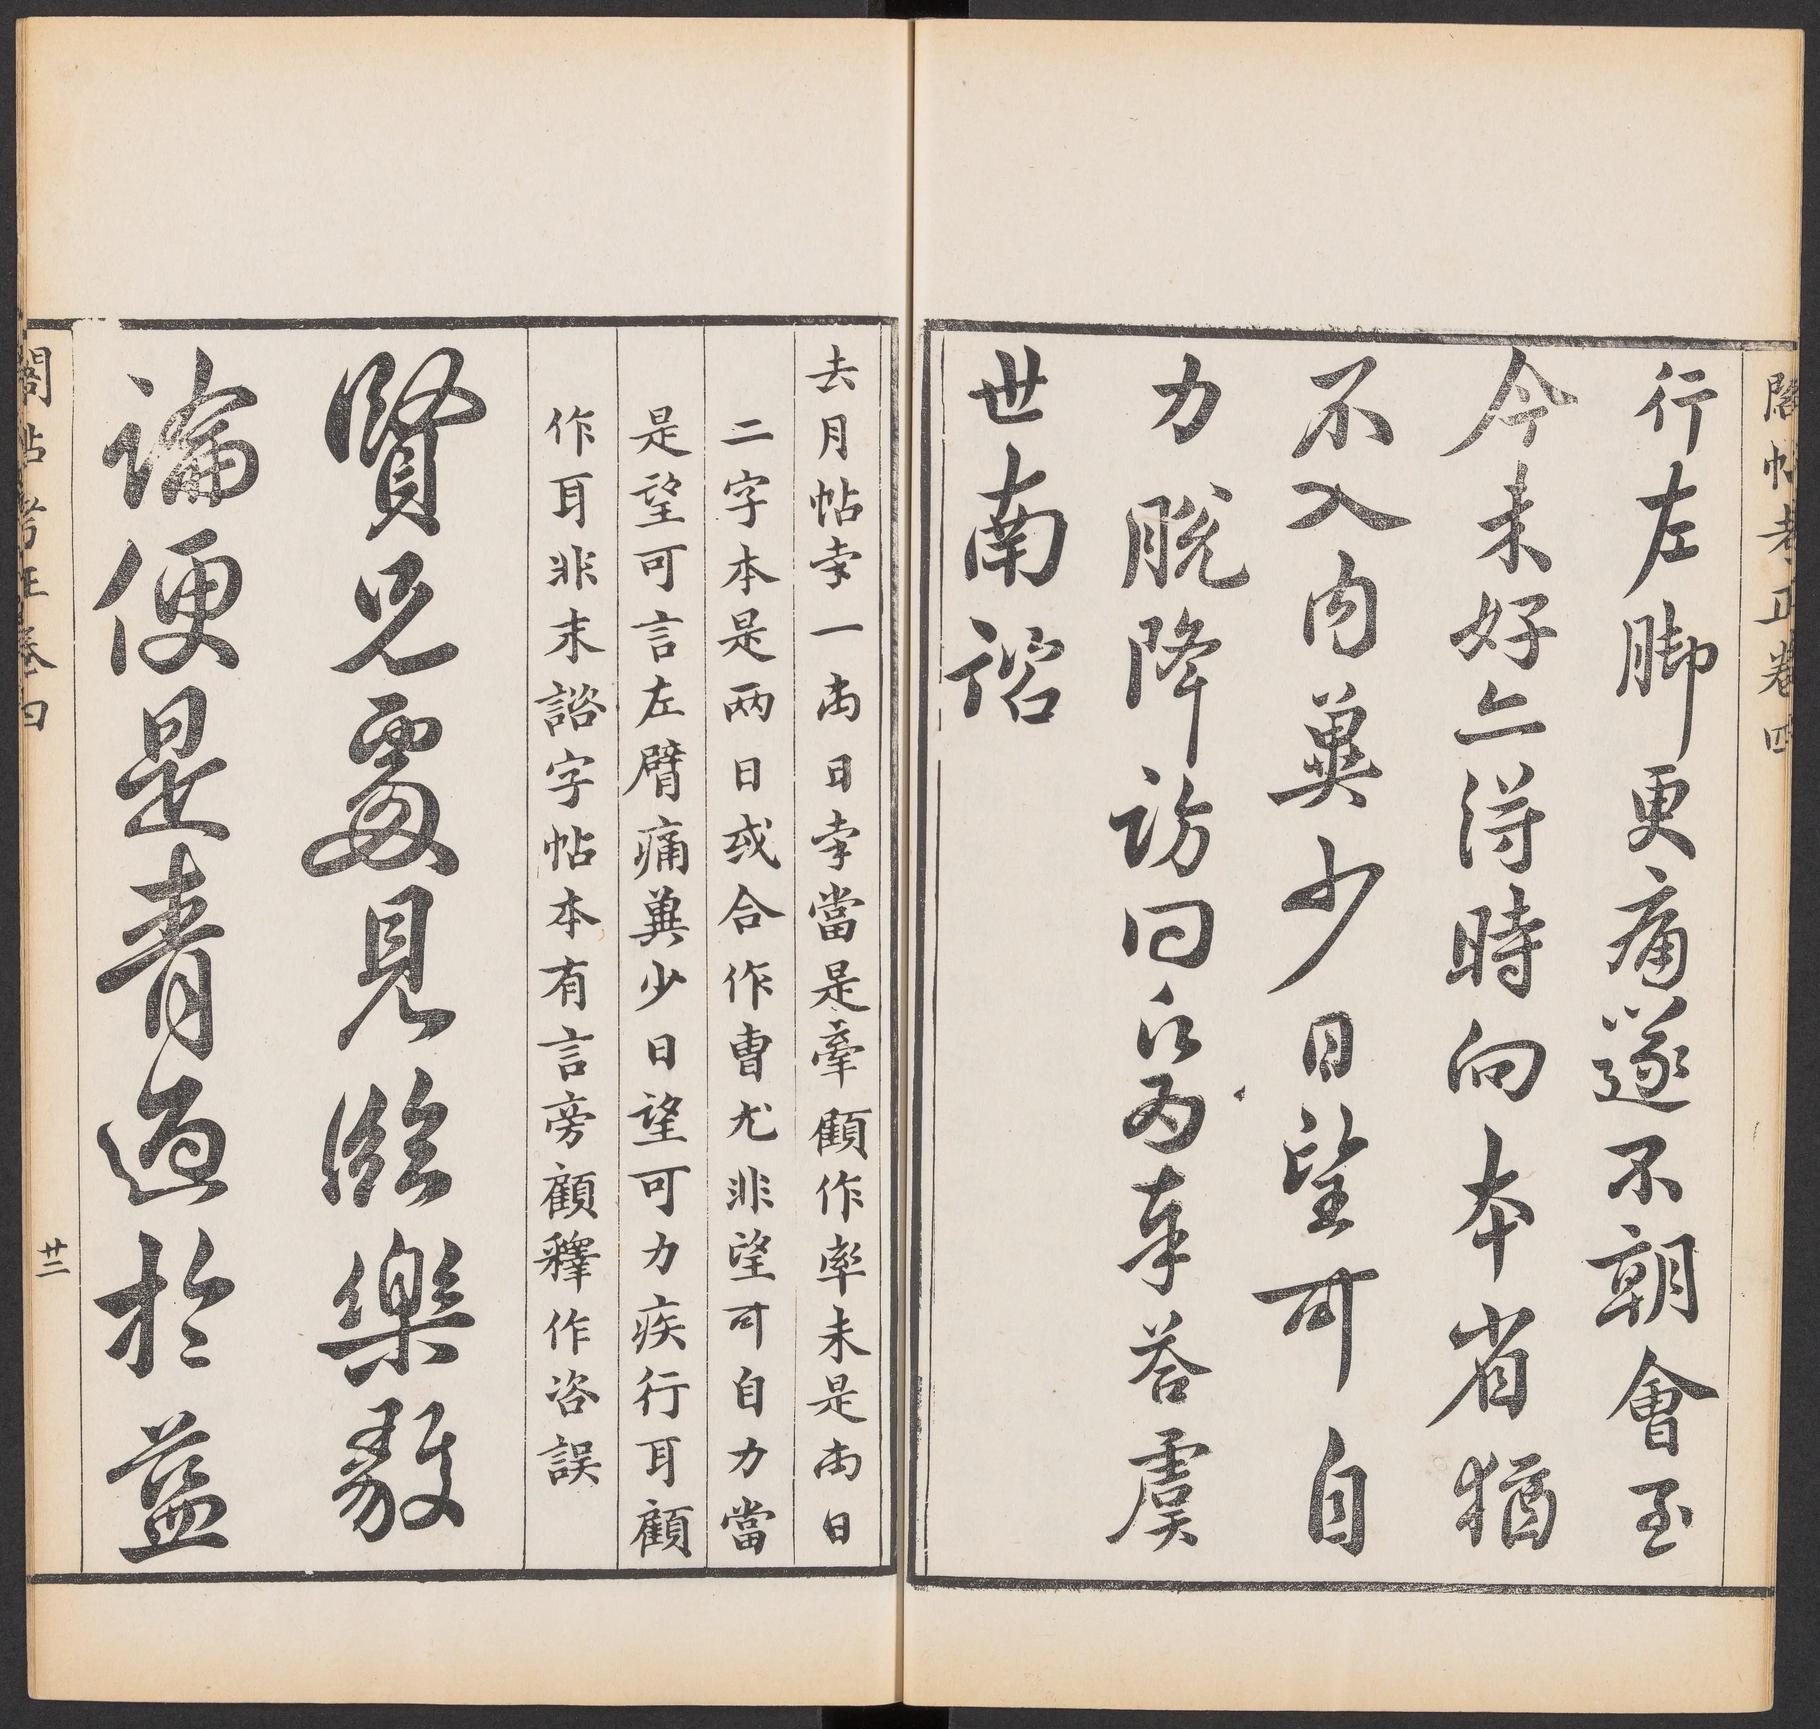 閣帖考正卷四
行左脚更痛遂不朝會至
今未好亦得時向本省猶
不入內冀少日望可自
力脫降訪問
為奉荅虞
世南諮
去月帖㚔一兩日㚔當是牽顧作率未是兩日
二字本是兩日或合作曹尤非望可自力當
是望可言左臂痛冀少日望可力疾行耳顧
作耳非末諮字帖本有言旁顧釋作咨誤
賢兄處見臨樂毅
論便是青過於藍
閣帖考正卷四
廿二